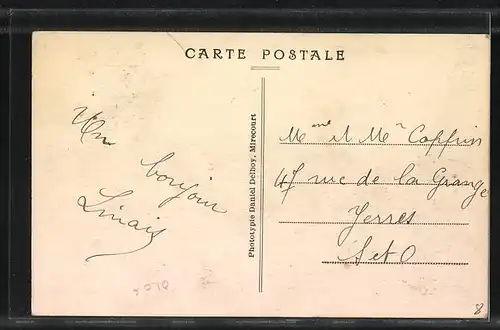 CARTE POSTALE
Un
bonjour
Phototypie Daniel Delboy, Mirecourt
Mme et Mr
47 rue de la Grange
Yerres
S et O
0104
8